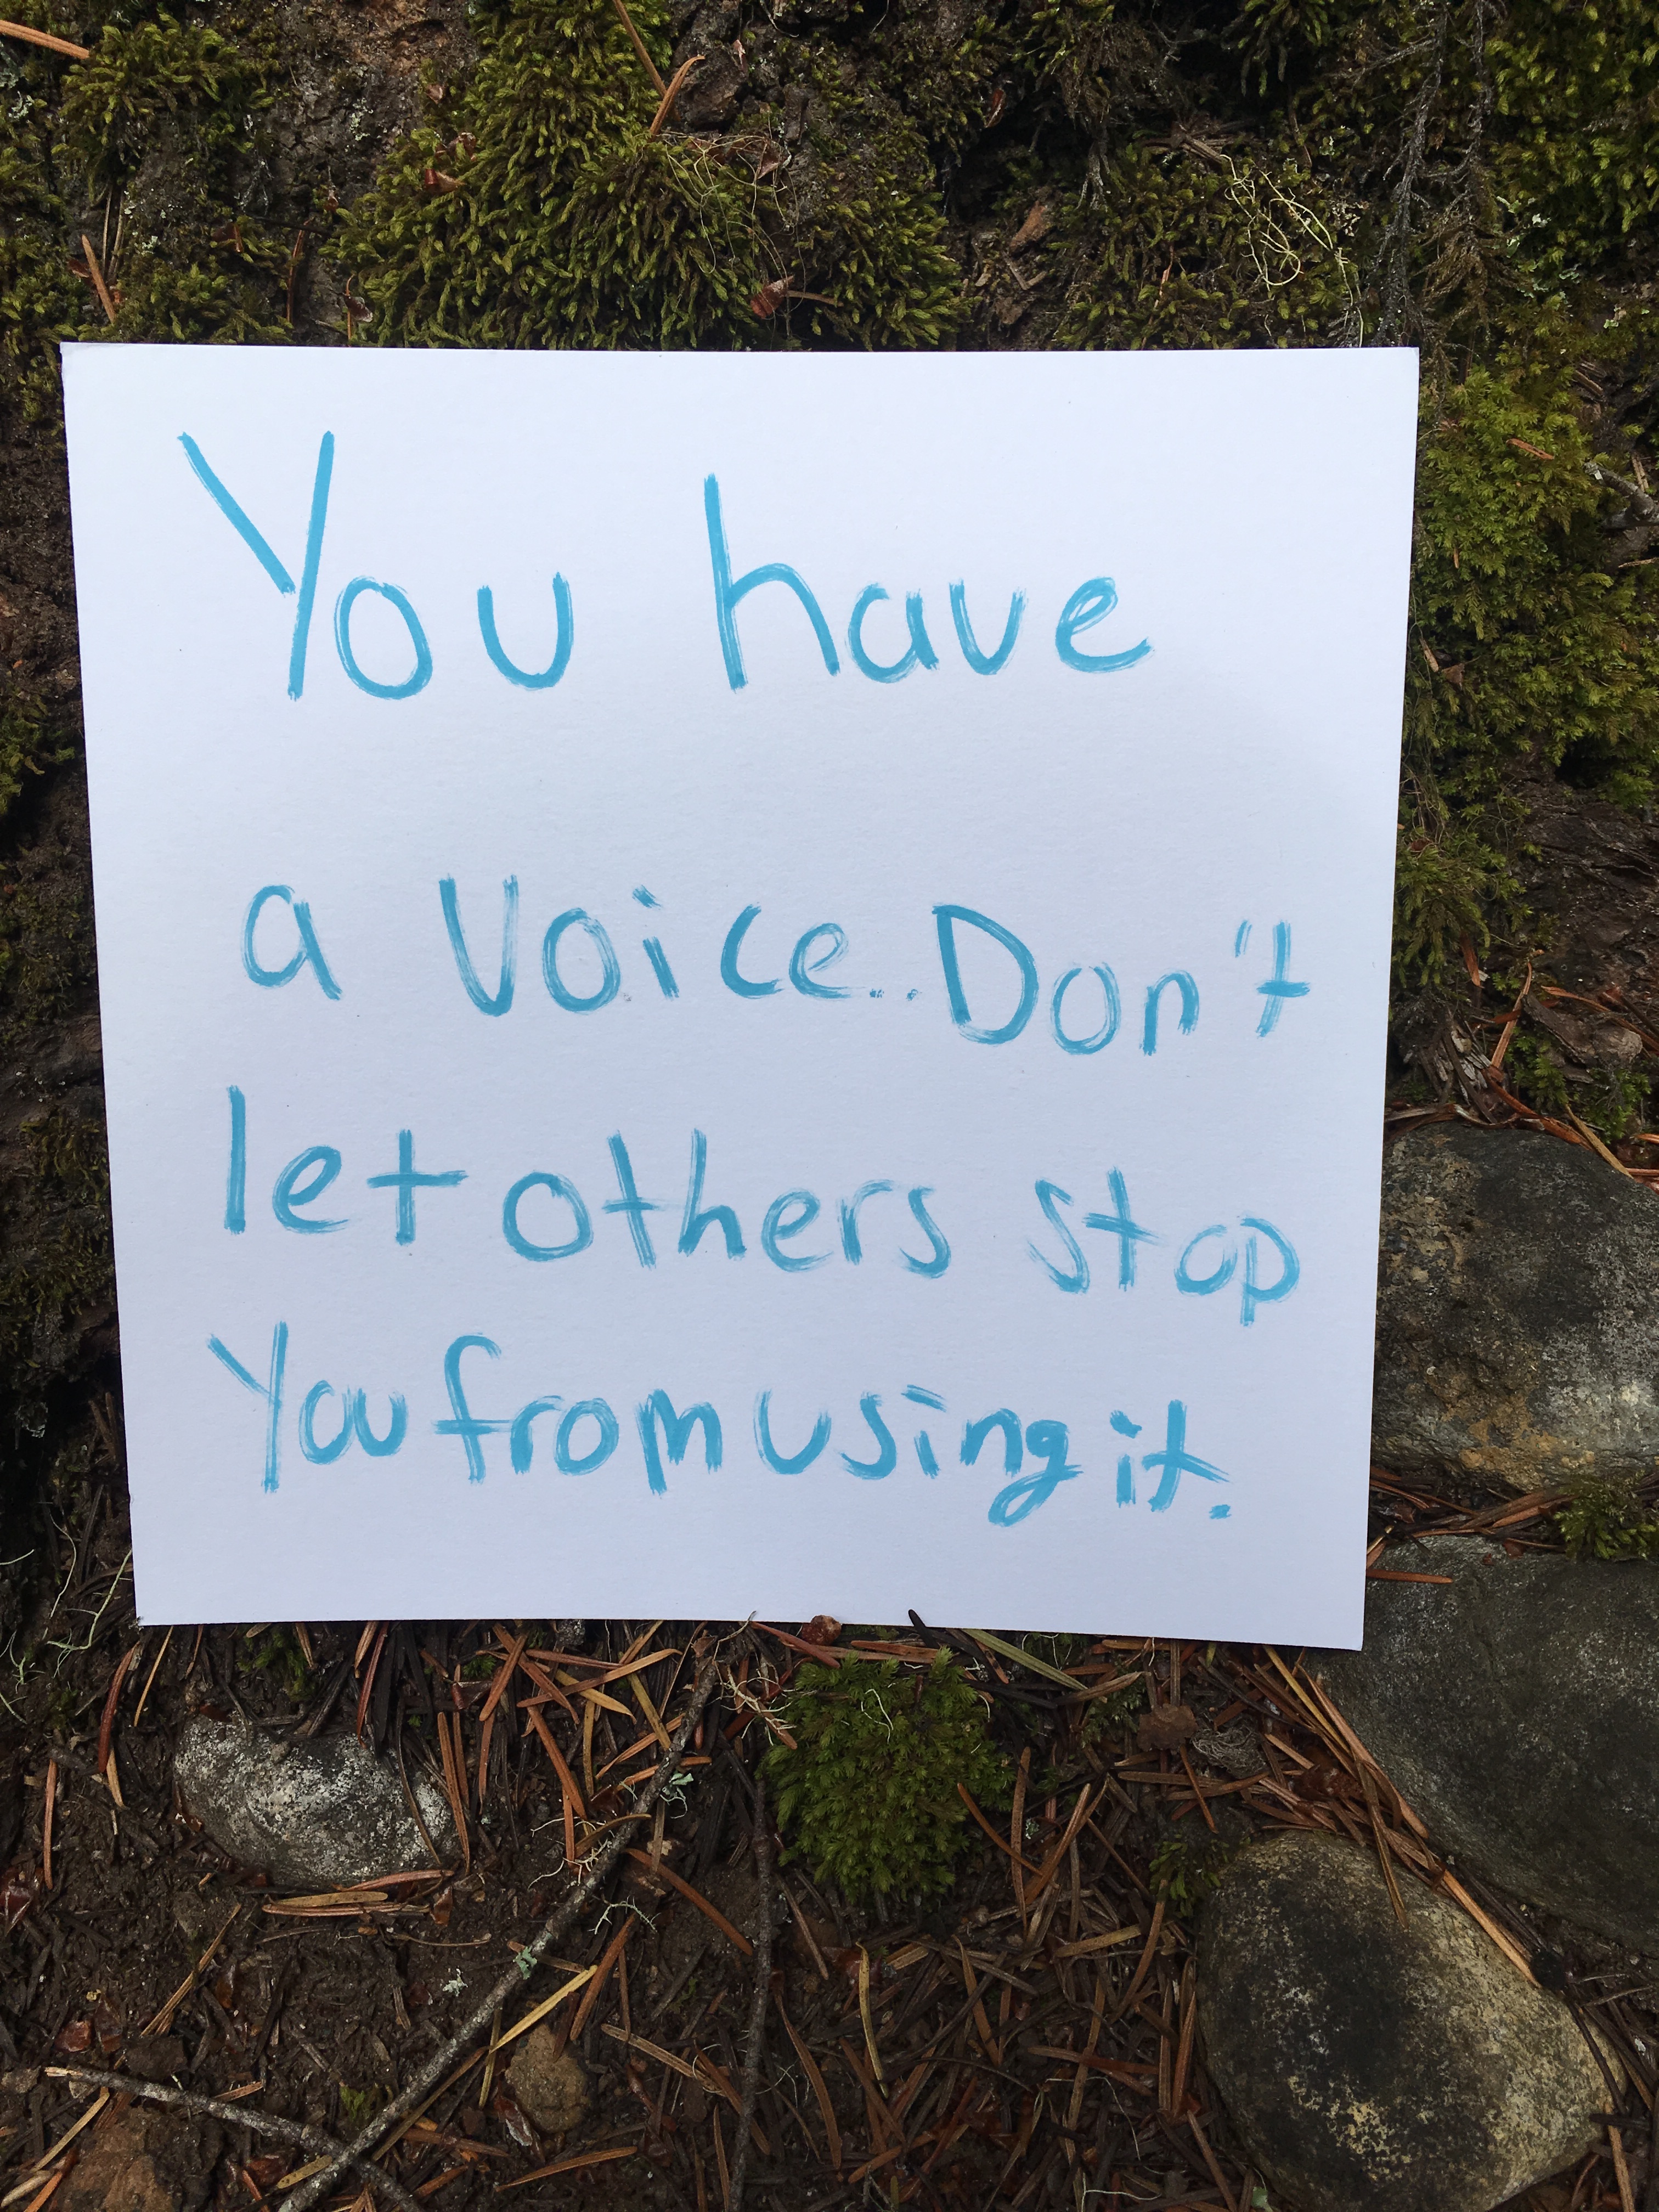 You have
a Voice.. Don't
let others stop
You from using it.